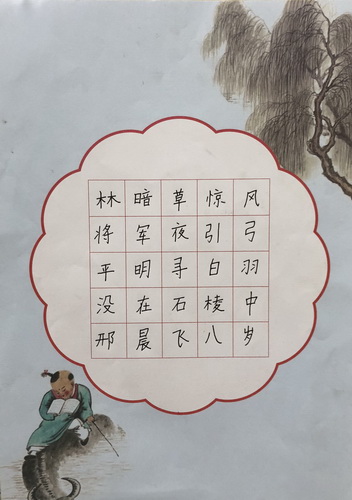 林暗草惊风
将军夜引弓
平明寻白羽
没在石棱中
邢晨飞八岁